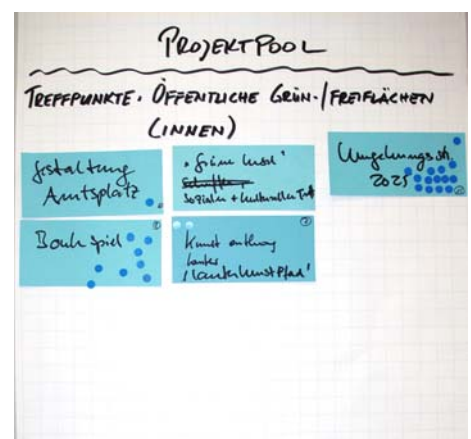 PROJEKTPOOL
TREFFPUNKTE · ÖFFENTLICHE GRÜN-/FREIFLÄCHEN
(INNEN)
Gestaltung
Amtsplatz
"Grüne Insel"
sozialer + kultureller
Umgehungsstr.
2025
Boule Spiel
Kunst entlang
Lauter
"Lauterkunstpfad"